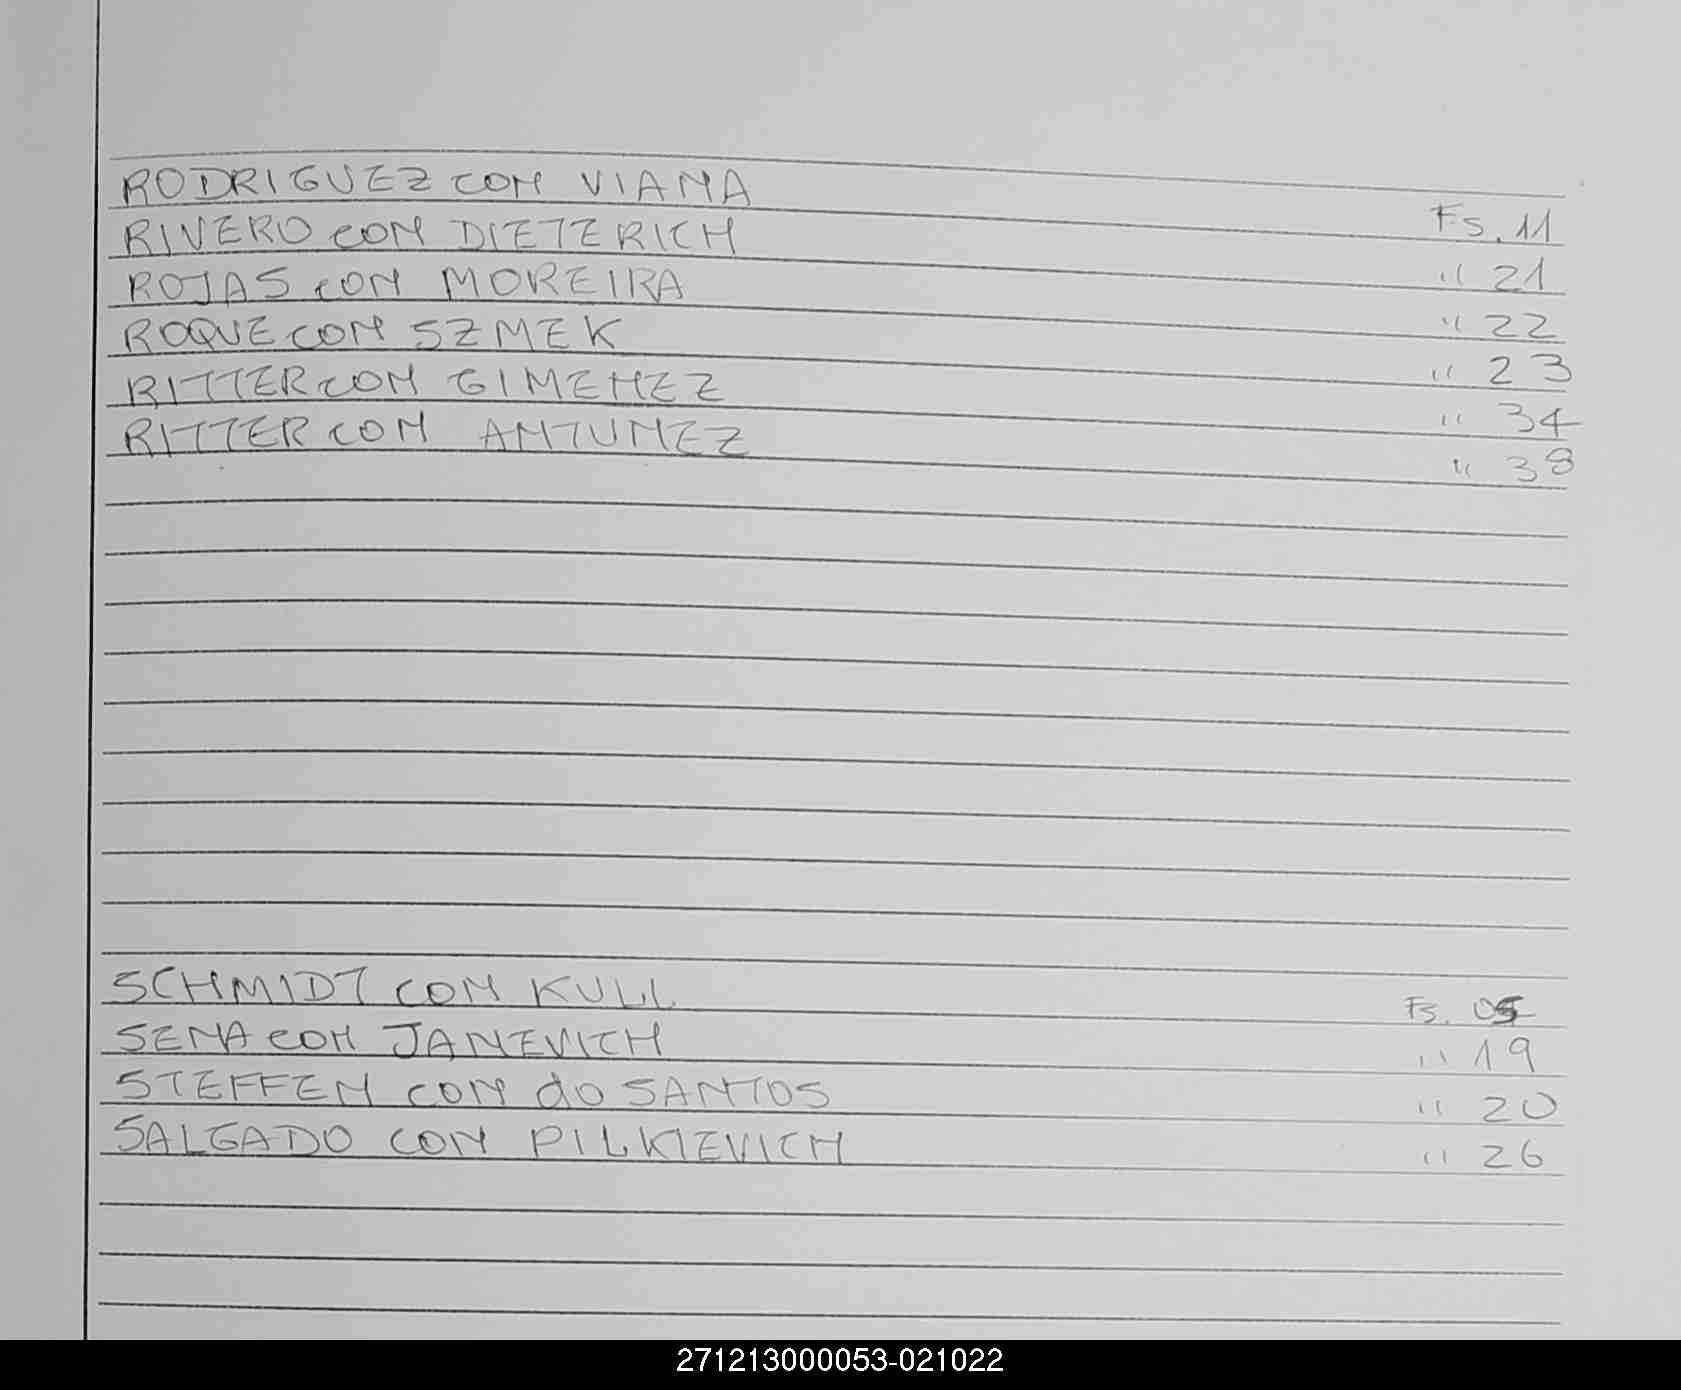 RODRIGUEZ CON VIANA Fs. 11
RIVERO CON DIETERICH " 21
ROJAS CON MOREIRA " 22
ROQUE CON SZMEK " 23
RITTER CON GIMENEZ " 34
RITTER CON ANTUNEZ " 38
SCHMIDT CON KULL Fs. 05
SENA CON JANEVICH " 19
STEFFEN CON do SANTOS " 20
SALGADO CON PILKIEVICH " 26
271213000053-021022